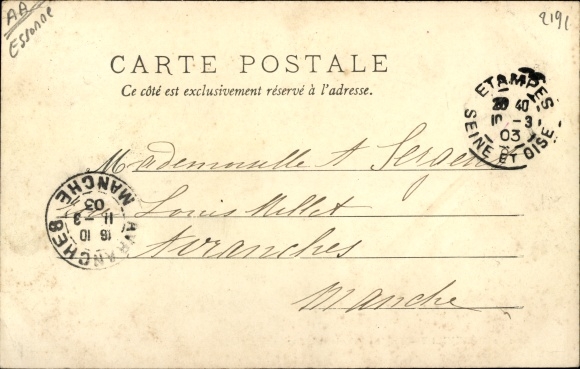 AA
Essonne
2191
CARTE POSTALE
Ce côté est exclusivement réservé à l'adresse.
ETAMPES
20 40
10 -3
03
SEINE ET OISE
Mademoiselle A Sergent
Louis Millet
Avranches
Manche
AVRANCHES
16 10
11 -3
03
MANCHE